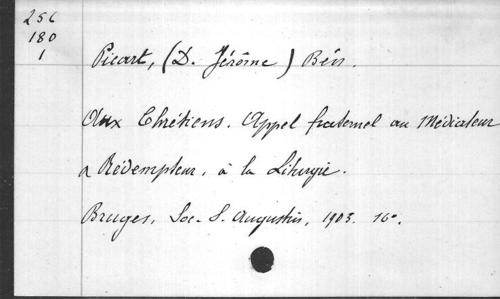 256
180
1
Picart, (D. Jérôme) Bén.
Aux Chrétiens. Appel fraternel au Médiateur
Rédempteur, à la Liturgie.
Bruges, Soc. S. Augustin, 1903. 16º.